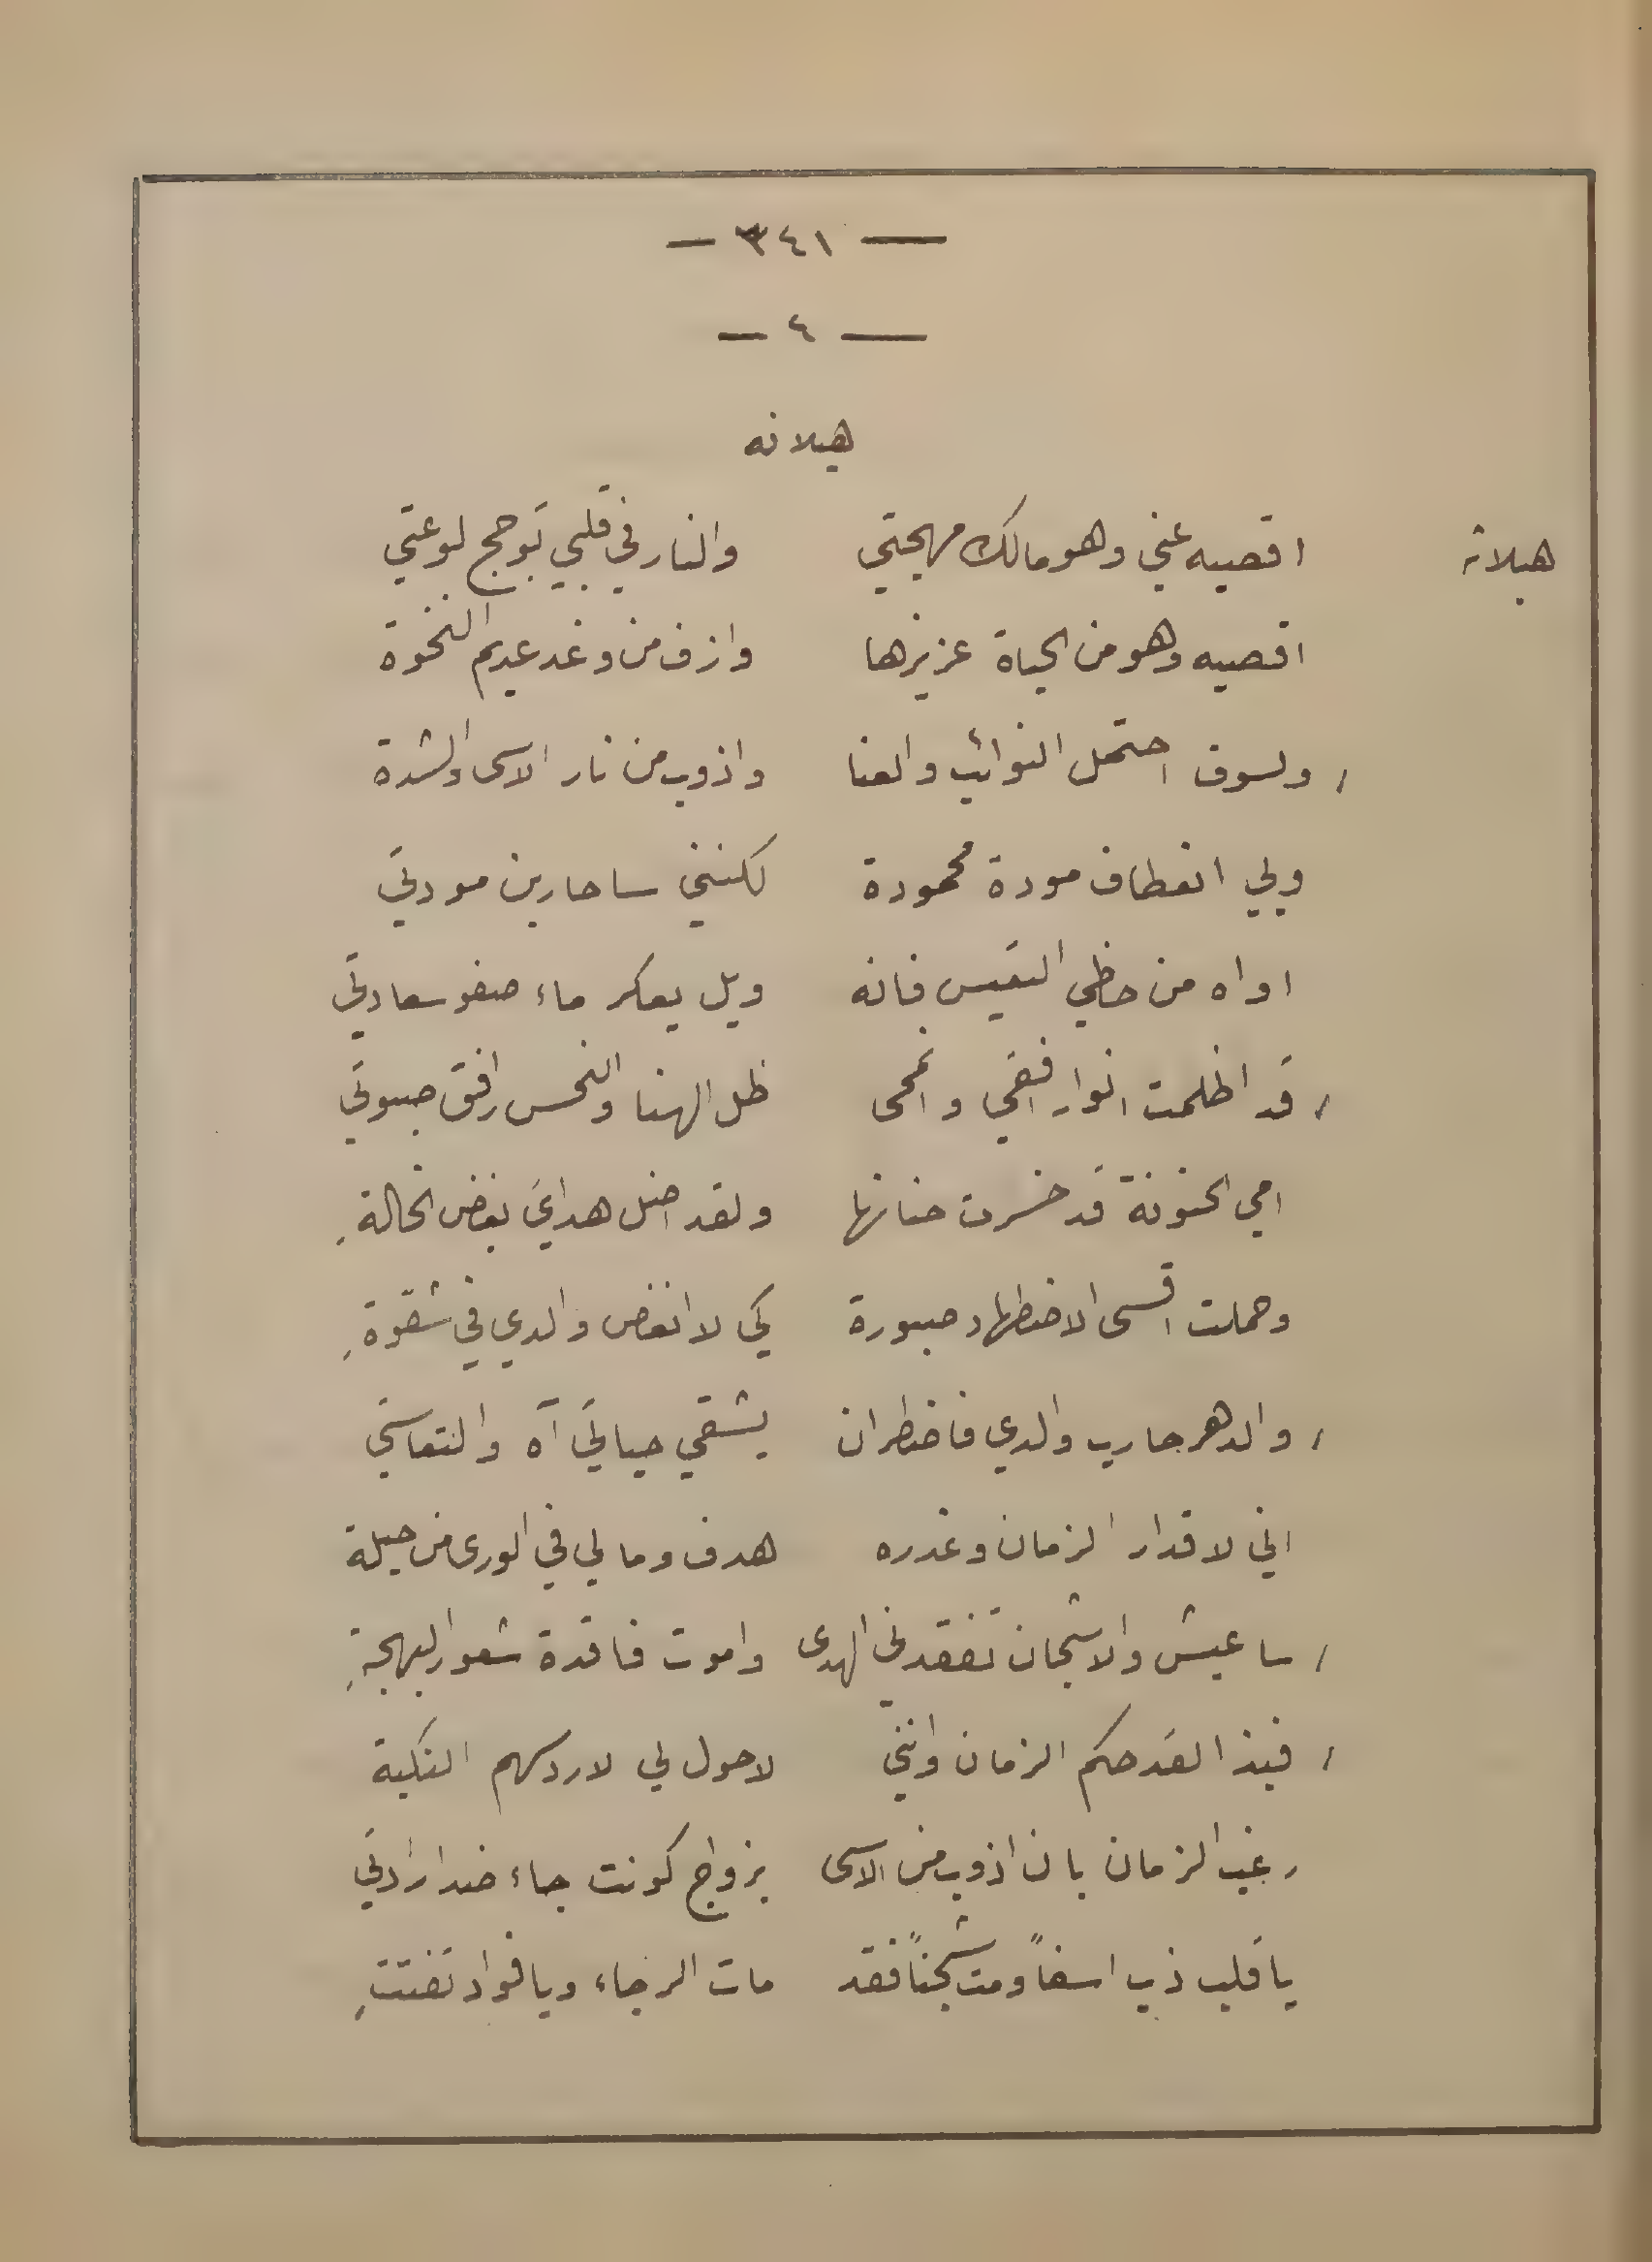 — ٣٤١ —
— ٤ —
هيلانه
هيلانة اقصيه عني وهو مالك مهجتي والنار في قلبي تؤجج لوعتي
اقصيه وهو من الحياة عزيزها وازف من وغد عديم النخوة
ولسوف احتمل النوائب والعنا واذوب من نار الاسى والشدة
وبي انعطاف مودة محمودة لكنني ساحارين مودتي
اواه من حظي التعيس فانه ويل يعكر ماء صفو سعادتي
قد اظلمت انوار افقي وانمحى ظل الهنا والنحس رافق صبوتي
امي الحنونة قد خسرت حنانها ولقد اضل هدايَ بغض الخالةِ
وحملت اقسى الاضطهاد صبورة كي لا انغص والدي في شقوةِ
والدهر حارب والدي فاضطر ان يشقي حياتي آه والتعاستي
اني لاقدار الزمان وغدره هدف وما لي في الورى من حيلة
ساعيش والاشجان تفقدني الهدى واموت فاقدة شعور البهجةِ
فبذا لقد حكم الزمان وانني لا حول لي لارد سهم النكبة
رغب الزمان بان اذوب من الاسى بزواج كونت جاء ضد ارادتي
يا قلب ذب اسفاً ومت شجناً فقد مات الرجاء ويا فواد تفتتِ